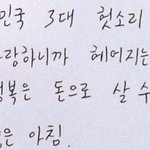 민국 3대 헛소리
랑하니까 헤어지는
행복은 돈으로 살 수
은 아침.